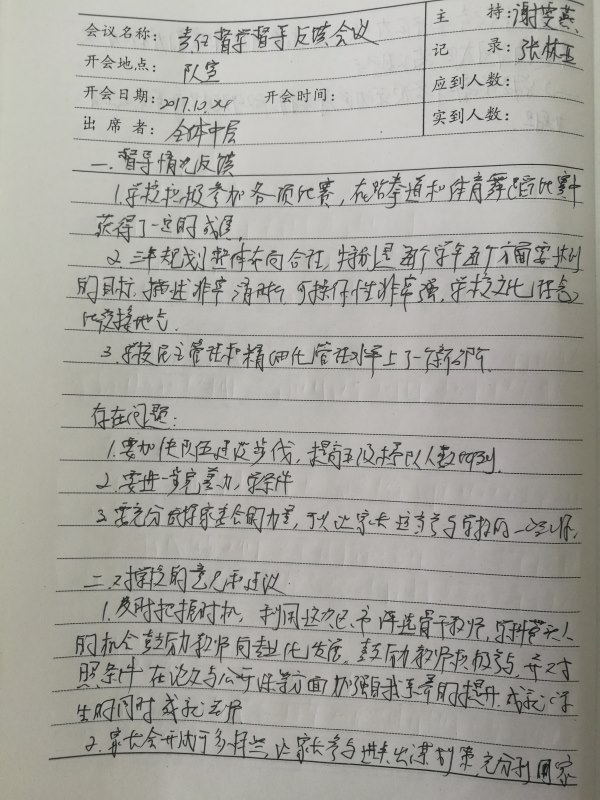 会议名称：责任督学督导反馈会议
主 持：谢雯燕
开会地点：队室
记 录：张林玉
开会日期：2017.10.24 开会时间：
应到人数：
出 席 者：全体中层
实到人数：
一、督导情况反馈
1.学校积极参加各项比赛，在跆拳道和体育舞蹈比赛中
获得了一定的成绩。
2.三年规划整体布局合理，特别是五个学年五个方面要达到
的目标，描述非常清晰，可操作性非常强，学校文化理念
比较接地气。
3.学校民主管理和精细化管理水平上了一个新台阶。
存在问题：
1.要加快队伍建设步伐，提高
2.要进一步完善办学条件
3.要充分发挥家委会的力量，可以让家长参与学校的一些工作。
二、对学校的意见和建议
1.及时把握时机，利用这次区、市评选骨干教师，学科带头人
的机会鼓励教师向专业化发展，鼓励教师积极参与，并对
照条件在论文与公开课等方面加强自我素养的提升，成就学
生的同时成就老师
2.家长会开成多样，让家长参与进来出谋划策，充分利用家